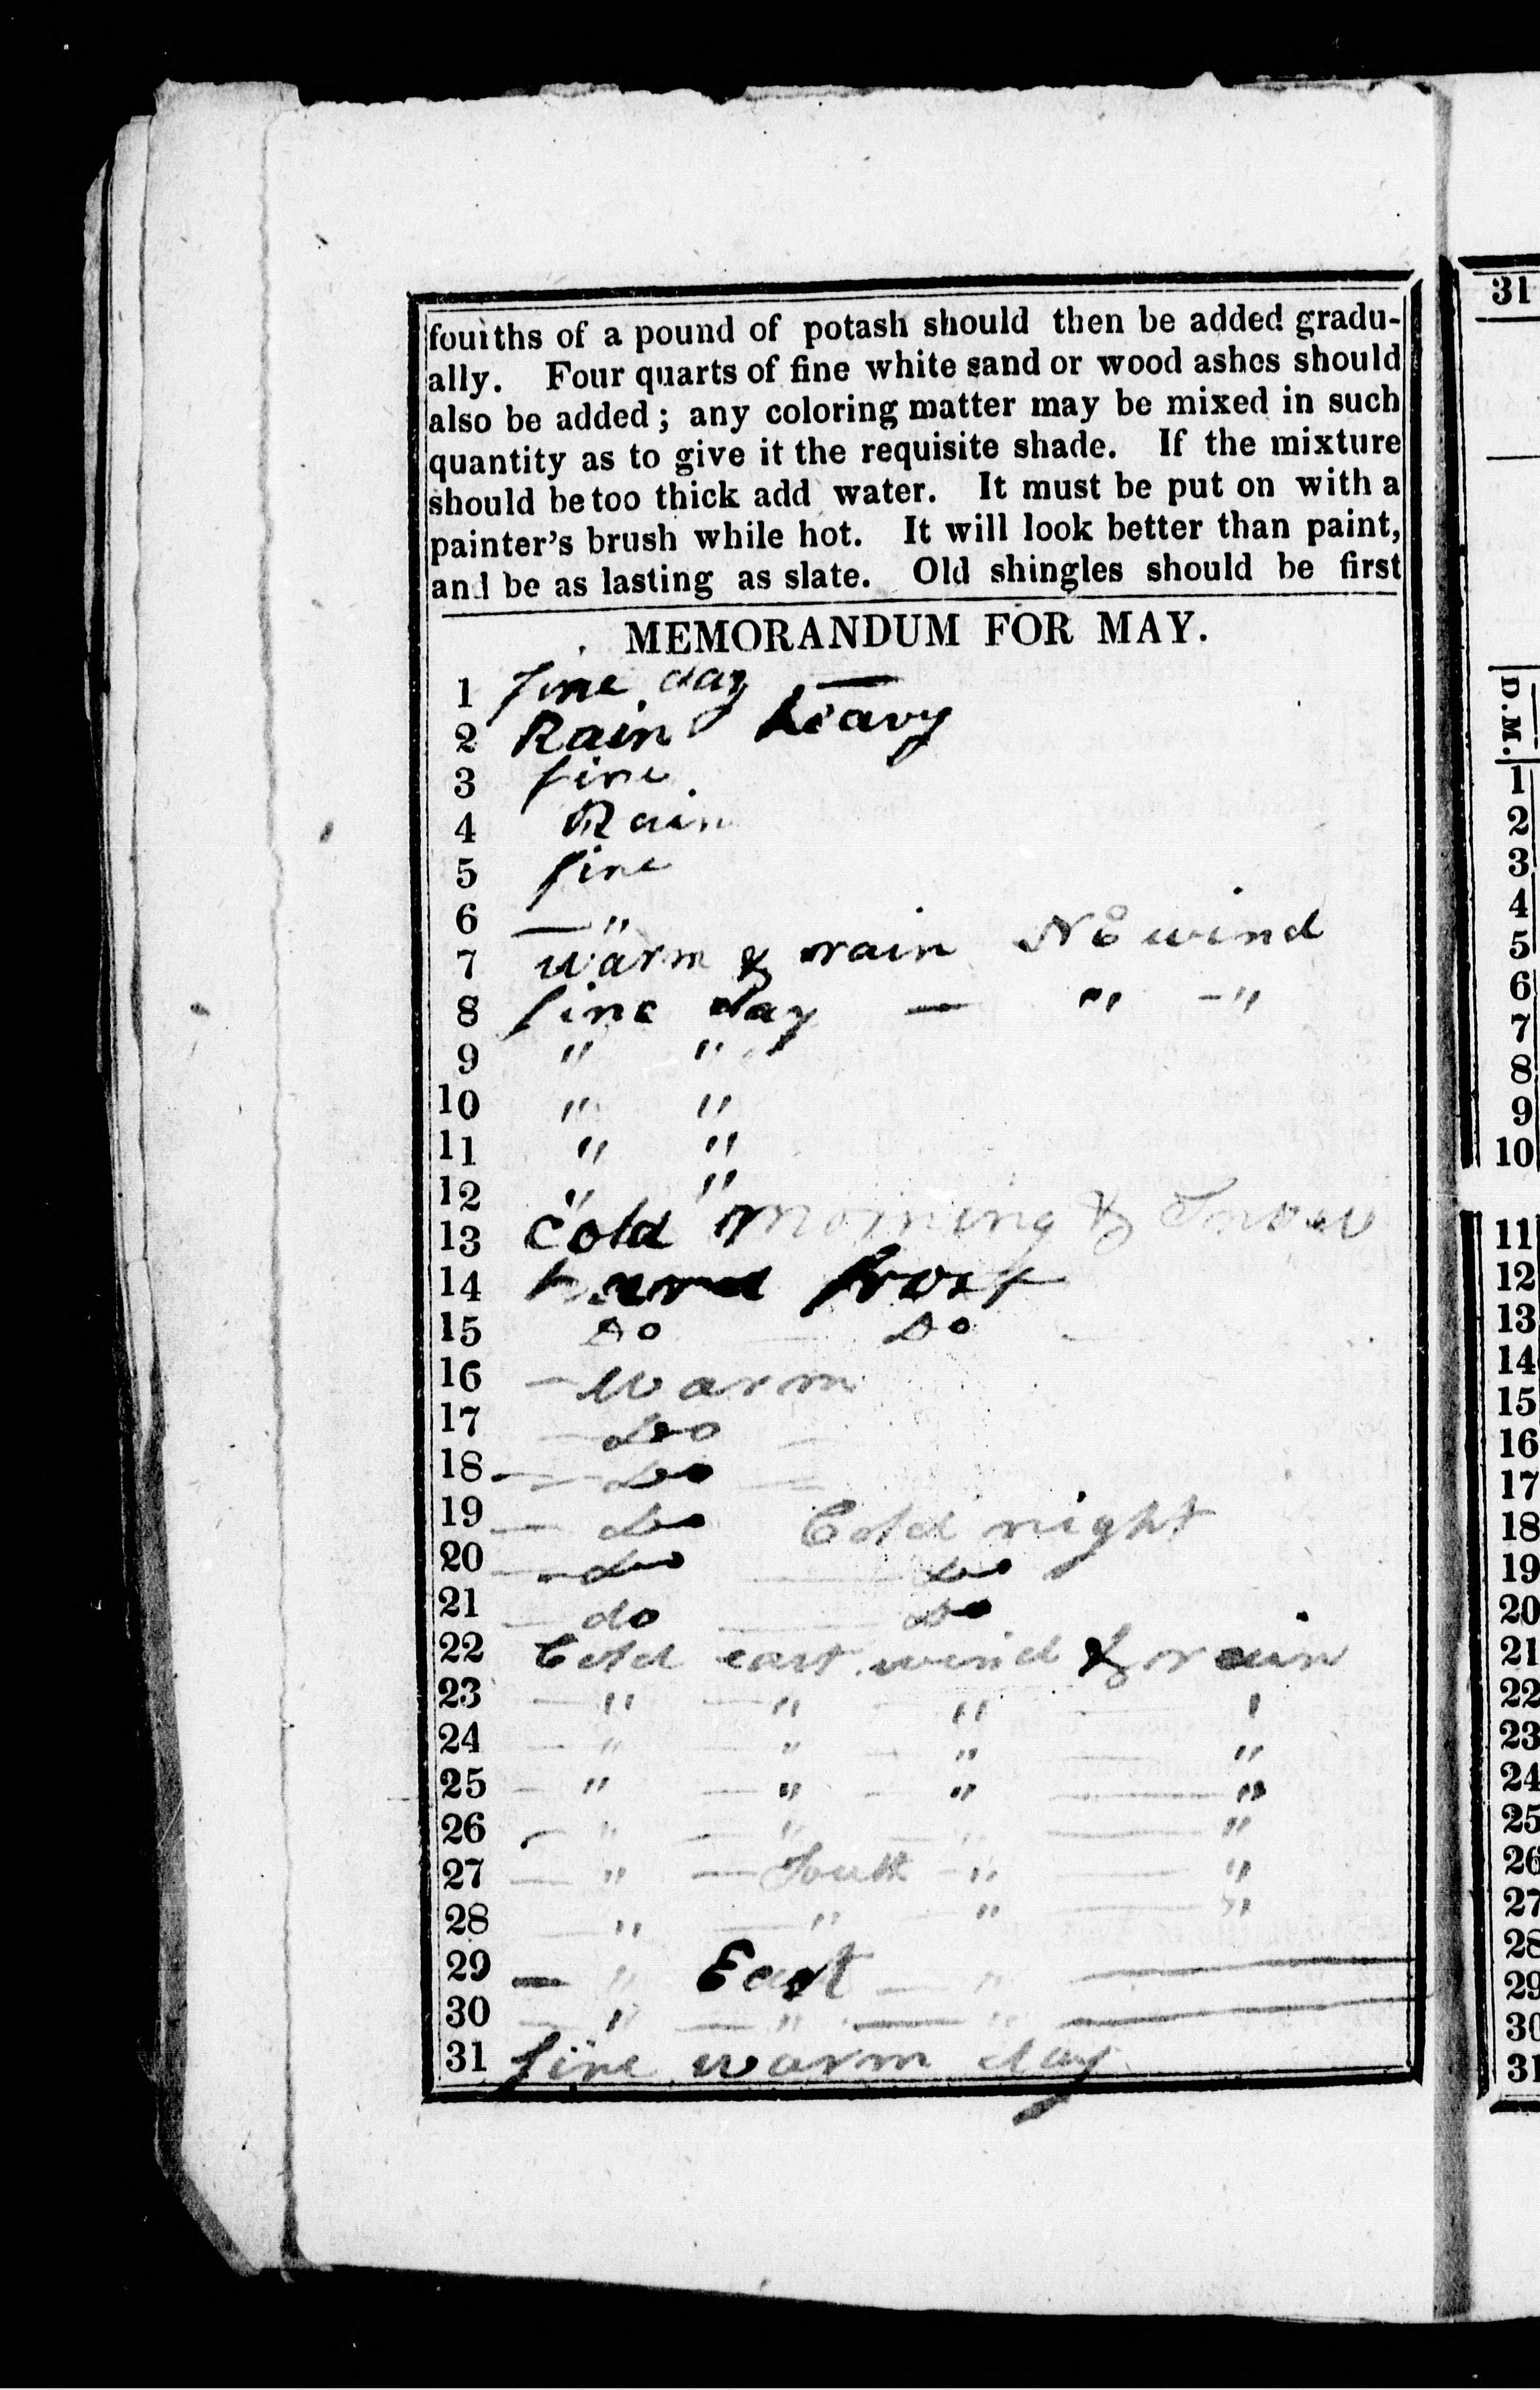 fourths of a pound of potash should then be added gradu-
ally. Four quarts of fine white sand or wood ashes should
also be added; any coloring matter may be mixed in such
quantity as to give it the requisite shade. If the mixture
should be too thick add water. It must be put on with a
painter's brush while hot. It will look better than paint,
and be as lasting as slate. Old shingles should be first
MEMORANDUM FOR MAY.
1 fine day —
2 Rain heavy
3 fine
4 Rain
5 fine
6 — "
7 warm & rain No wind
8 fine day — " - "
9 " "
10 " "
11 " "
12 " "
13 Cold morning & Snow
14 hard frost
15 Do Do
16 - warm
17 - Do -
18 - - Do -
19 - do Cold night
20 - do - do
21 - do - Do
22 Cold east wind & rain
23 - " - " - " - "
24 - " - " - " - "
25 - " - " - " - "
26 - " - " - " - "
27 - " - South - " - "
28 - " - " - " - "
29 - " East - " -
30 - " - " - " -
31 fine warm day
31
D. M.
1
2
3
4
5
6
7
8
9
10
11
12
13
14
15
16
17
18
19
20
21
22
23
24
25
26
27
28
29
30
31